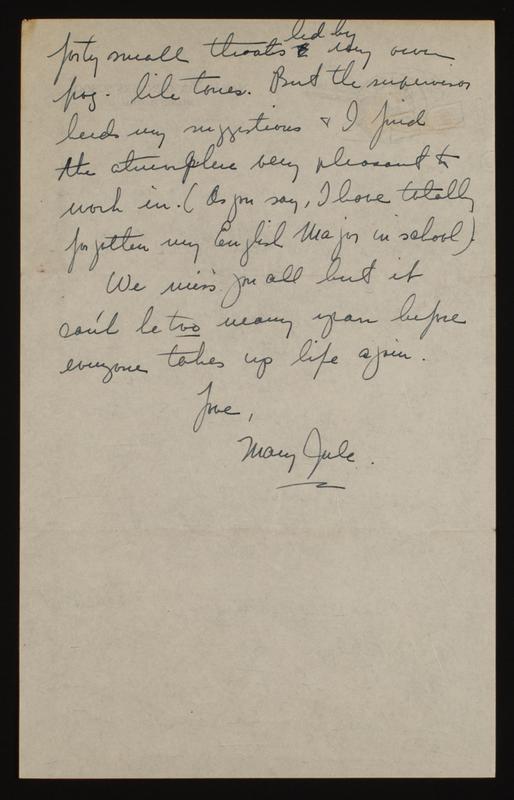 forty small throats led by my own
frog-like tones. But the supervisor
heeds my suggestions & I find
the atmosphere very pleasant to
work in. (As you say, I have totally
forgotten my English Major in school).
We miss you all but it
can't be too many years before
everyone takes up life again.
Love,
Mary Jule.